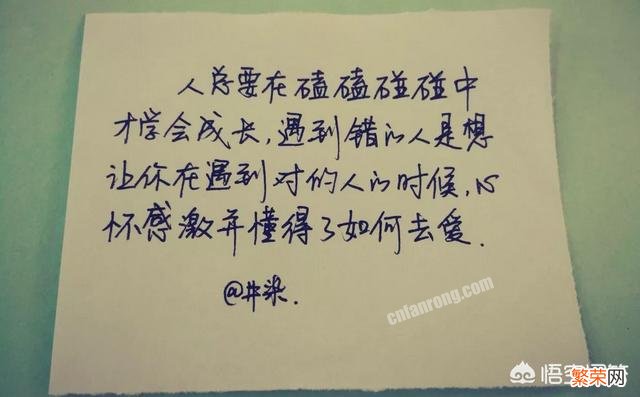 人总要在磕磕碰碰中
才学会成长,遇到错的人是想
让你在遇到对的人的时候,心
怀感激并懂得了如何去爱.
@井染.
cnfanrong.com
悟空问答
繁荣网